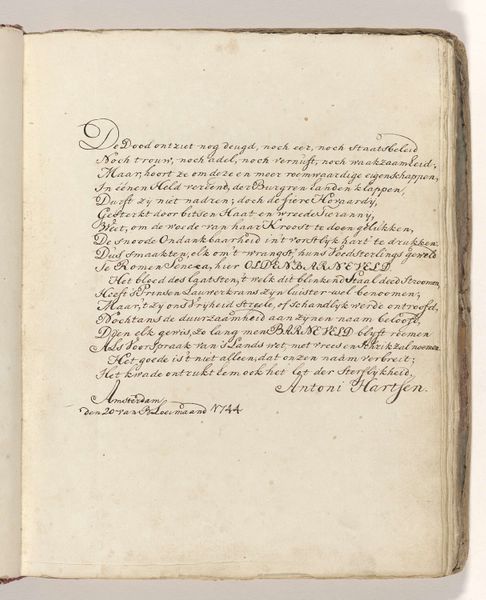 De Dood ontziet nog deugd, noch eer, noch Staats beleid
Noch trouw, noch adel, noch vernuft, noch waakzaamheid;
Maar, hoort ze om deze en meer roemwaardige eigenschappen,
In éénen Held vereend, der Burgren handen klappen,
Durft zy niet nadren; doch de fiere Hovaardy,
Gesterkt door bitsen Haat en wreede Tieranny,
Weet, om de woede van haar Kroost te doen gelukken,
De snoode Ondankbaarheid in 't vorstlyk hart te drukken.
Dus smaakten, elk om 't wrangst, huns Voedsterlings geweld
Te Romen Seneca, hier OLDENBARNEVELD.
Het bloed des laatsten, 't welk dit blinkend Staal deed Stroomen,
Heeft 's Prinsen Lauwerkrans zyn luister wel benoomen;
Maar, 't zy ons Vryheid Streele, of schandlyk werde ontroofd,
Nochtans de duurzaamheid aan zynen naam beloofd.
Dien elk gewis, zo lang men BARNEVELD blyft roemen
Als Voor Spraak van 's Lands wet, met vrees en Schrik zal noemen.
Het goede is 't niet alleen, dat onzen naam verbreit;
Het kwade ontrukt hem ook het lot der Sterflykheid.
Antoni Hartsen.
Amsterdam,
den 20 van Bloeimaand 1744